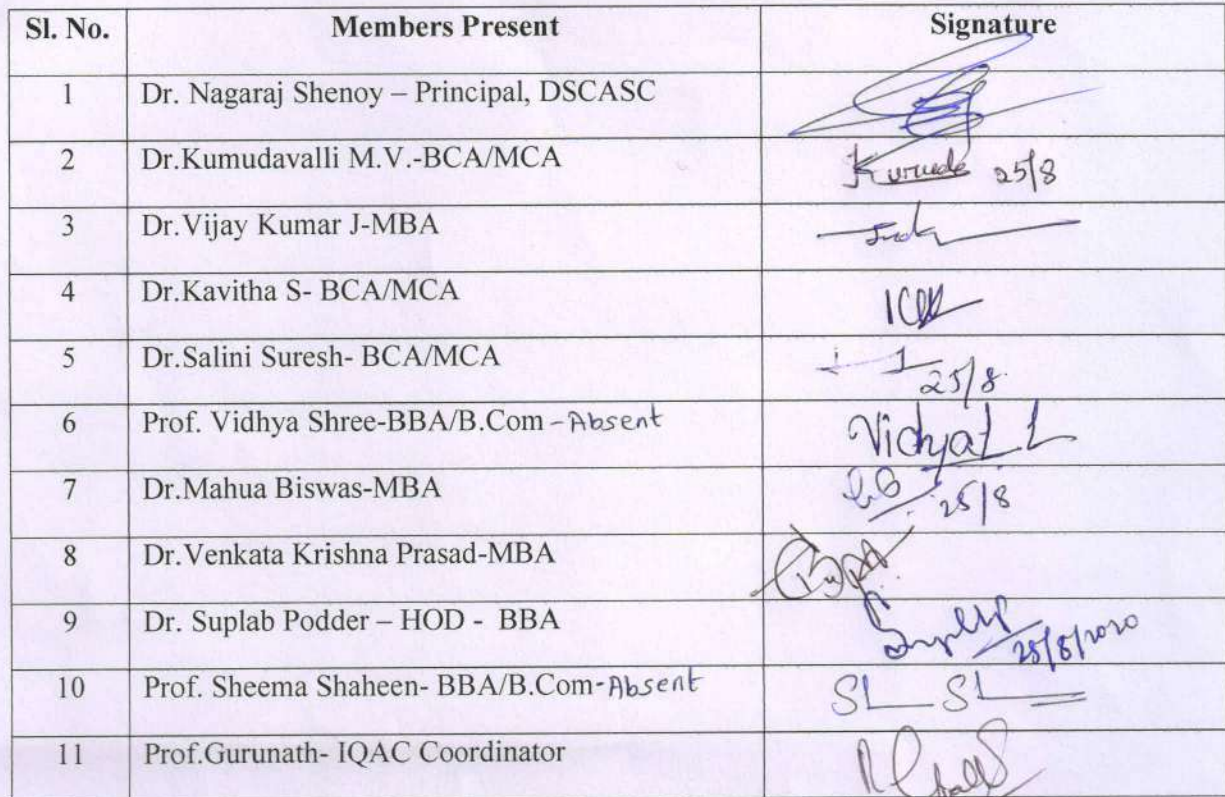 Sl. No. Members Present Signature
1 Dr. Nagaraj Shenoy – Principal, DSCASC
2 Dr.Kumudavalli M.V.-BCA/MCA 25/8
3 Dr.Vijay Kumar J-MBA
4 Dr.Kavitha S- BCA/MCA
5 Dr.Salini Suresh- BCA/MCA 25/8
6 Prof. Vidhya Shree-BBA/B.Com - Absent
7 Dr.Mahua Biswas-MBA 25/8
8 Dr.Venkata Krishna Prasad-MBA
9 Dr. Suplab Podder – HOD - BBA 25/8/2020
10 Prof. Sheema Shaheen- BBA/B.Com-Absent
11 Prof.Gurunath- IQAC Coordinator